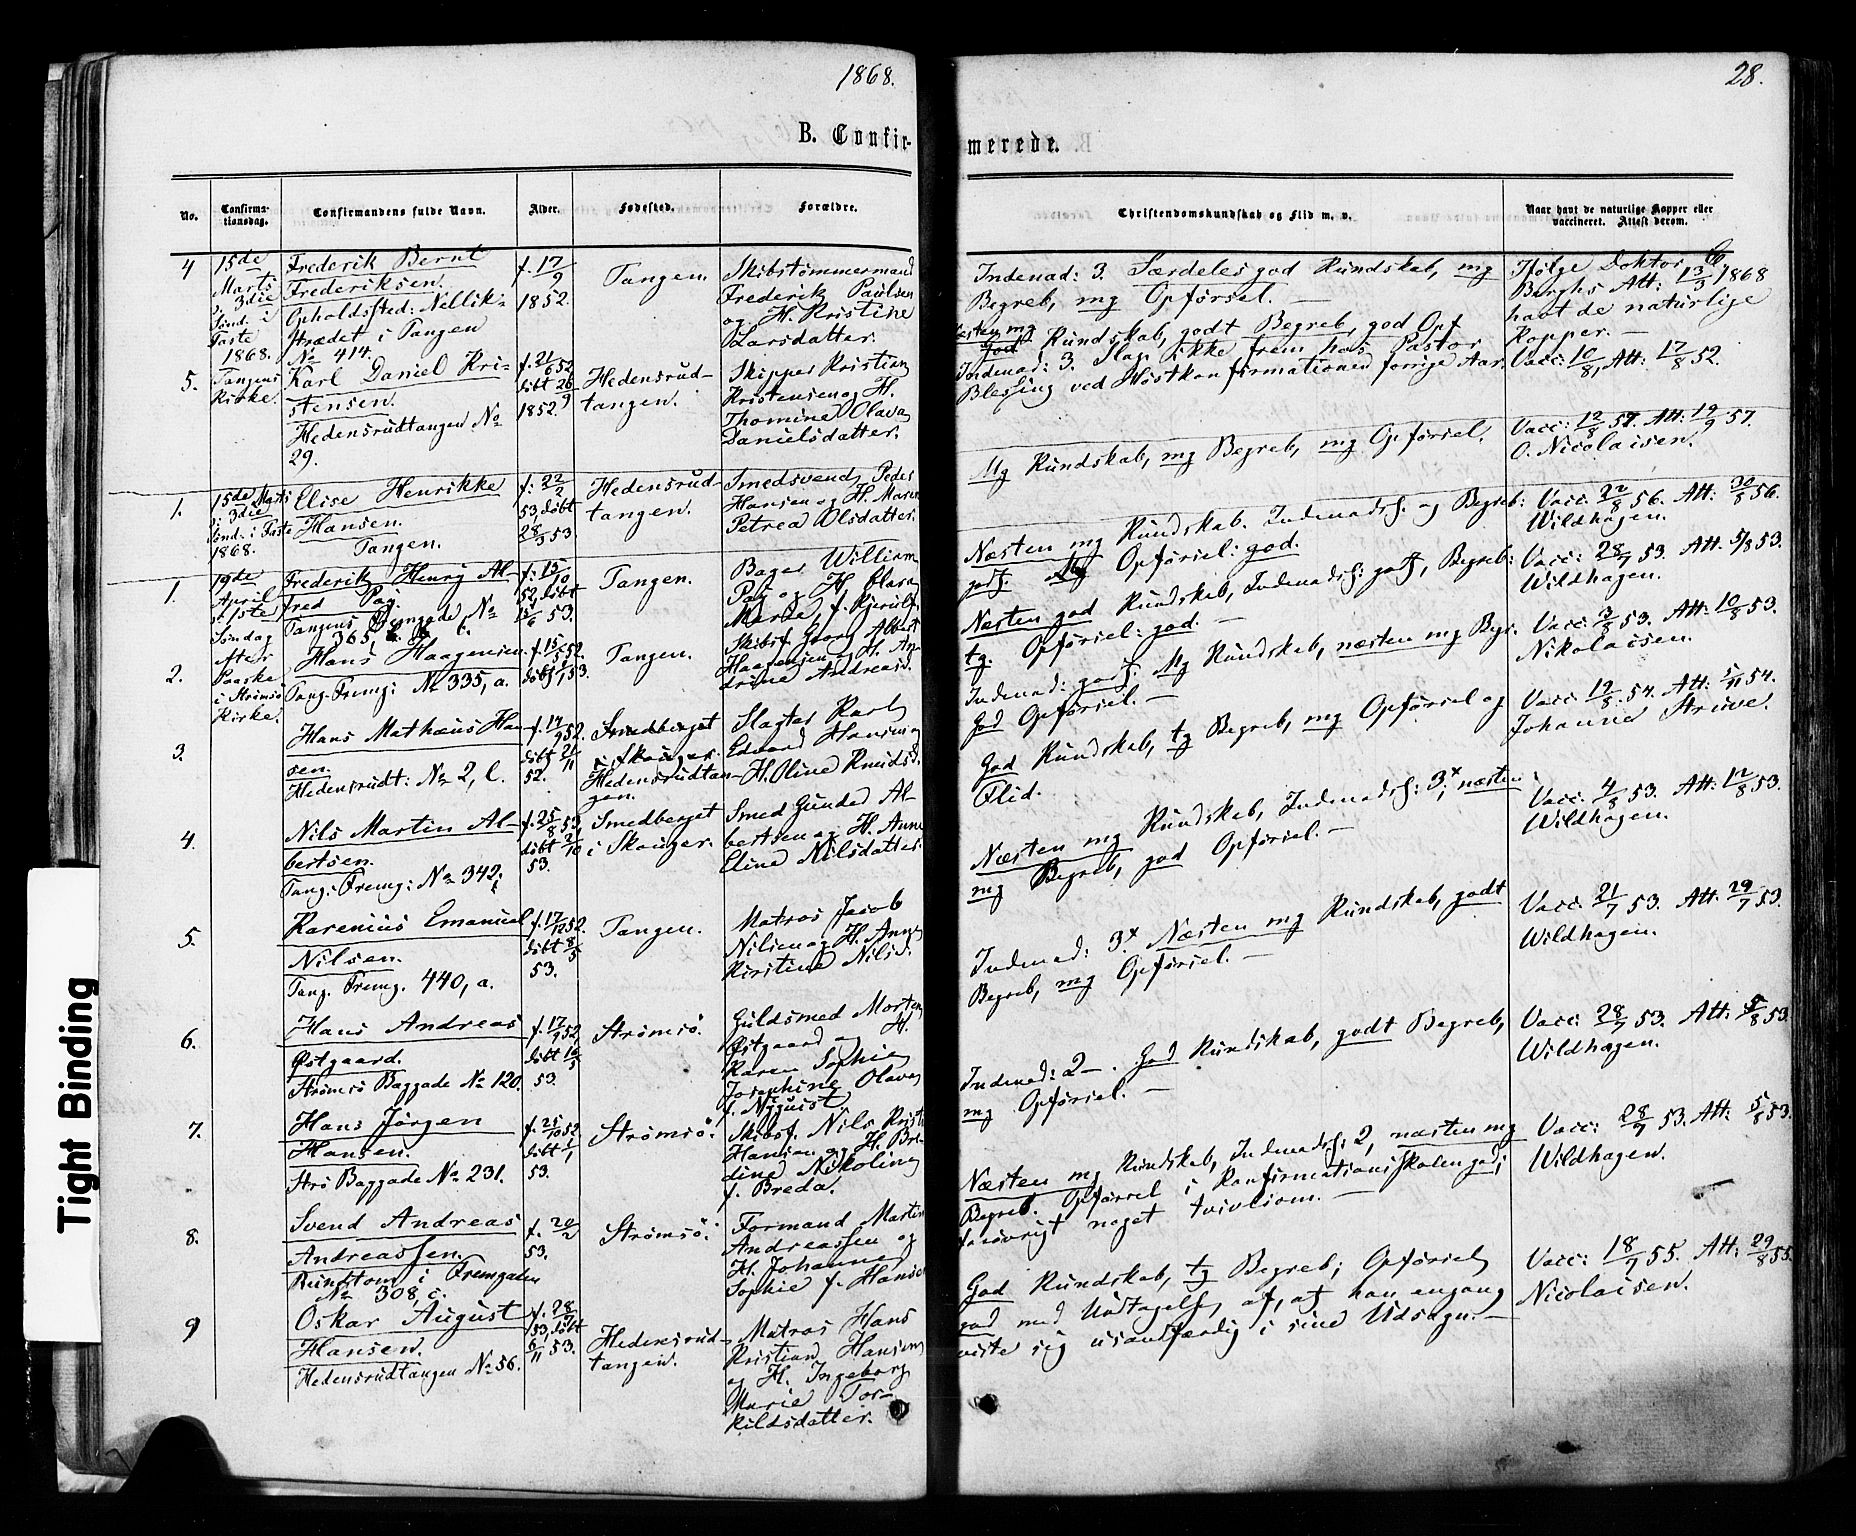 1868.
B. Confir-
No.
Confirma-
tionsdag.
Confirmandens fulde Navn.
Alder.
Fødested.
Forældre.
4
15de
Marts
3die
Sønd. i
Faste
1868.
Tangens
Kirke.
Frederik Bernt
Frederiksen.
Opholdssted: Nellik-
strædet i Tangen
No 414.
f. 17/9
1852.
Tangen.
Skibstømmermand
Frederik Paulsen
og H. Kristine
Larsdatter.
5.
Karl Daniel Kri-
stensen.
Hedensrudtangen No
29.
f. 21/6 52
døbt 26/9
1852.
Hedensrud-
tangen.
Skipper Kristian
Kristensen og H.
Thomine Olava
Danielsdatter.
1.
15de Marts
3die
Sønd. i Faste
1868.
Elise Henrikke
Hansen.
Tangen.
f: 22/2
53, døbt
28/3 53.
Hedensrud-
tangen.
Smedsvend Peder
Hansen og H. Maren
Petrea Olsdatter.
1.
19de
April
1ste
Søndag
efter
Paaske
i Strømsø
Kirke.
Frederik Henry Al-
fred Paj.
Tangens Fremgade No
365,
f. 15/10
52, døbt
53.
Tangen.
Bager William
Paj og H. Clara
Marie f. Kjerulf.
2.
Hans Haagensen.
Tang. Fremg: No 335, a.
f. 15/
53.
Tangen.
Skibsf. Georg Albert
Haagensen og H. An-
drine Andreasd.
3.
Hans Mathæus Han-
sen.
Hedensrudt: No 2, l.
f. 14/9 52.
døbt 21/11
52.
Smedberget
i Skouger.
Hedensrudtan-
gen.
Slagter Karl
Edvard Hansen og
H. Oline Knudsd.
4.
Nils Martin Al-
bertsen.
Tang: Fremg: No 342,
f. 25/8 53,
døbt 2/10
53.
Smedberget
i Skouger.
Smed Gunder Al-
bertsen og H. Anne
Eline Nilsdatter.
5.
Karenius Emanuel
Nilsen.
Tang. Fremg. 440, a.
f. 17/12 52.
døbt 8/5
53.
Tangen.
Matros Jacob
Nilsen og H. Anne
Kirstine Nilsd.
6.
Hans Andreas
Østgaard.
Strømsø Baggade No 120.
f. 17/9 52,
døbt 16/5
53.
Strømsø.
Guldsmed Morten
Østgaard og H.
Karen Sophie
Josephine Olava
f. Nyquist
7.
Hans Jørgen
Hansen.
Strø Baggade No 231.
f. 25/10 52
døbt 1/1
53.
Strømsø.
Skibsf. Nils Krist.
Hansen og H. Ber-
dine Nikoline
f. Breda.
8.
Svend Andreas
Andreassen.
Rundtom i Fremgaden
No 308, c.
f. 20/2
53.
Strømsø.
Formand Martin
Andreassen og
H. Johanne
Sophie f. Hansen
9
Oskar August
Hansen.
Hedensrudtangen No 56.
f. 28/
53, døbt
6/11 53.
Hedensrud-
tangen.
Matros Hans
Kristian Hansen
og H. Ingeborg
Marie Tor-
kildsdatter.
28.
merede.
Christendomskundskab og Flid m. v.
Naar havt de naturlige Kopper eller
vaccineret. Attest derom.
Indenad: 3. Særdeles god Kundskab, mg
Begreb, mg Opførsel. —
Ifølge Doktor
Borghs Att: 13/3 1868
havt de naturlige
Kopper. —
Næsten mg
God Kundskab, godt Begreb, god Opf
Indenad: 3. Slap ikke frem hos Pastor
Blessing ved Høstkonfirmationen forrige Aar.
Vacc: 10/8, Att: 17/8 52.
Mg Kundskab, mg Begreb, mg Opførsel.
Vacc: 12/8 57. Att: 19/9 57.
O. Nicolaisen.
Næsten mg Kundskab. Indenads. og Begreb:
godt. Opførsel: god.
Vacc: 22/8 56. Att: 30/8 56.
Wildhagen.
Næsten god Kundskab, Indenads: godt, Begreb:
tg. Opførsel: god. —
Vacc: 28/7 53. Att. 5/8 53.
Wildhagen.
Indenad: godt. Mg Kundskab, næsten mg Begr.
God Opførsel. —
Vacc: 3/8 53. Att: 10/8 53.
Nikolaisen.
God Kundskab, tg Begreb, mg Opførsel og
Flid.
Vacc: 19/8 54. Att: 1/11 54.
Johanne Struve.
Næsten mg Kundskab, Indenads: 3x, næsten
mg Begreb, god Opførsel. —
Vacc: 4/8 53. Att: 12/8 53.
Wildhagen.
Indenad: 3x. Næsten mg Kundskab, godt
Begreb, mg Opførsel. —
Vacc. 21/7 53. Att. 29/7 53.
Wildhagen.
Indenad: 2—. God Kundskab, godt Begreb,
mg Opførsel. —
Vacc: 28/7 53. Att: 5/8 53.
Wildhagen.
Næsten mg Kundskab, Indenads: 2, næsten mg
Begreb. Opførsel i Konfirmationsskolen god,
forøvrigt noget tvivlsom. —
Vacc: 28/7 53. Att: 5/8 53.
Wildhagen.
God Kundskab, tg Begreb; Opførsel
god med Undtagelse af, at han engang
viste sig usandfærdig i sine Udsagn. —
Vacc: 18/7 55. Att: 29/8 55.
Nicolaisen.
Tight Binding